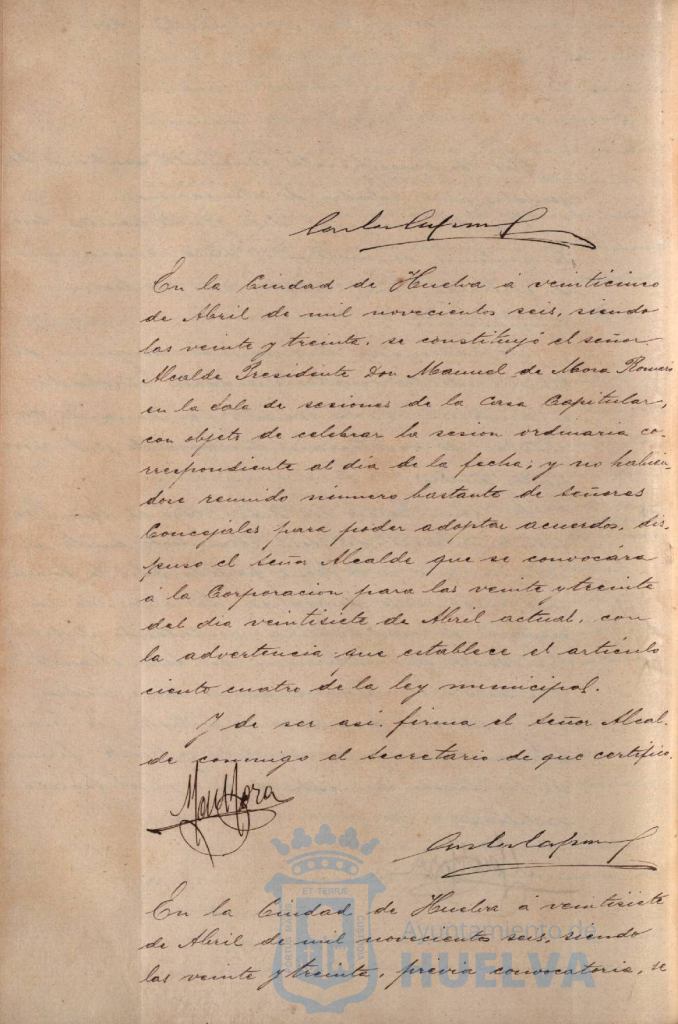 En la Ciudad de Huelva á veinticinco
de Abril de mil novecientos seis, siendo
las veinte y treinta, se constituyó el señor
Alcalde Presidente Don Manuel de Mora Romero
en la Sala de sesiones de la Casa Capitular,
con objeto de celebrar la sesion ordinaria co-
rrespondiente al dia de la fecha; y no habien-
dose reunido número bastante de señores
Concejales para poder adoptar acuerdos, dis-
puso el señor Alcalde que se convocára
á la Corporacion para las veinte y treinta
del dia veintisiete de Abril actual, con
la advertencia que establece el artículo
ciento cuatro de la ley municipal.
Y de ser asi firma el señor Alcal-
de conmigo el Secretario de que certifico.
Mora
ET TERRÆ
En la Ciudad de Huelva á veintisiete
de Abril de mil novecientos seis, siendo
las veinte y treinta, previa convocatoria, se
Ayuntamiento de
HUELVA